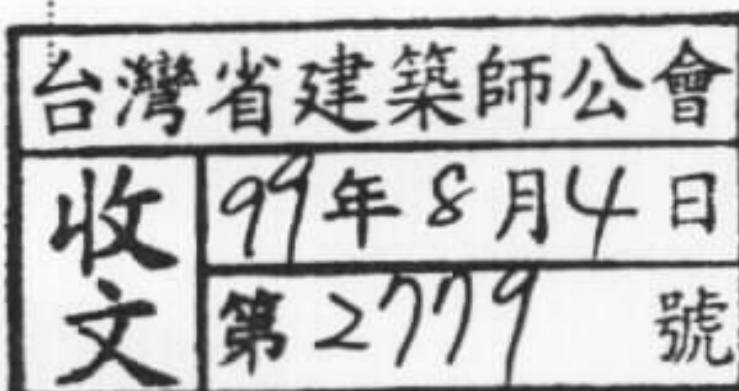 台灣省建築師公會
收文
99年8月4日
第2779號